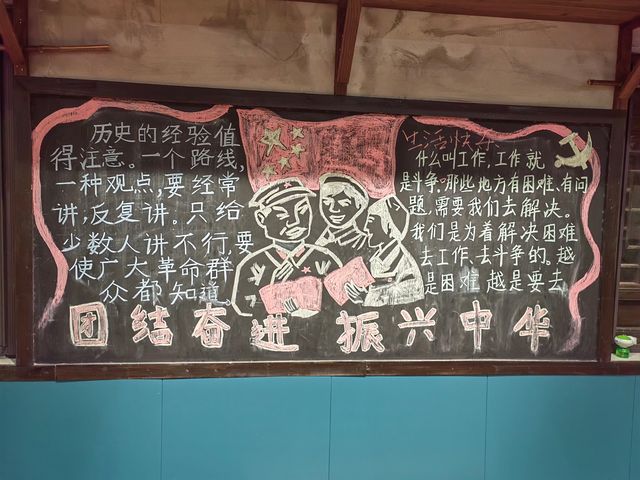 历史的经验值
得注意。一个路线,
一种观点,要经常
讲,反复讲。只给
少数人讲不行,要
使广大革命群
众都知道。
生活快乐
什么叫工作,工作就
是斗争。那些地方有困难、有问
题,需要我们去解决。
我们是为着解决困难
去工作、去斗争的。越
是困难 越是要去
团结奋进 振兴中华